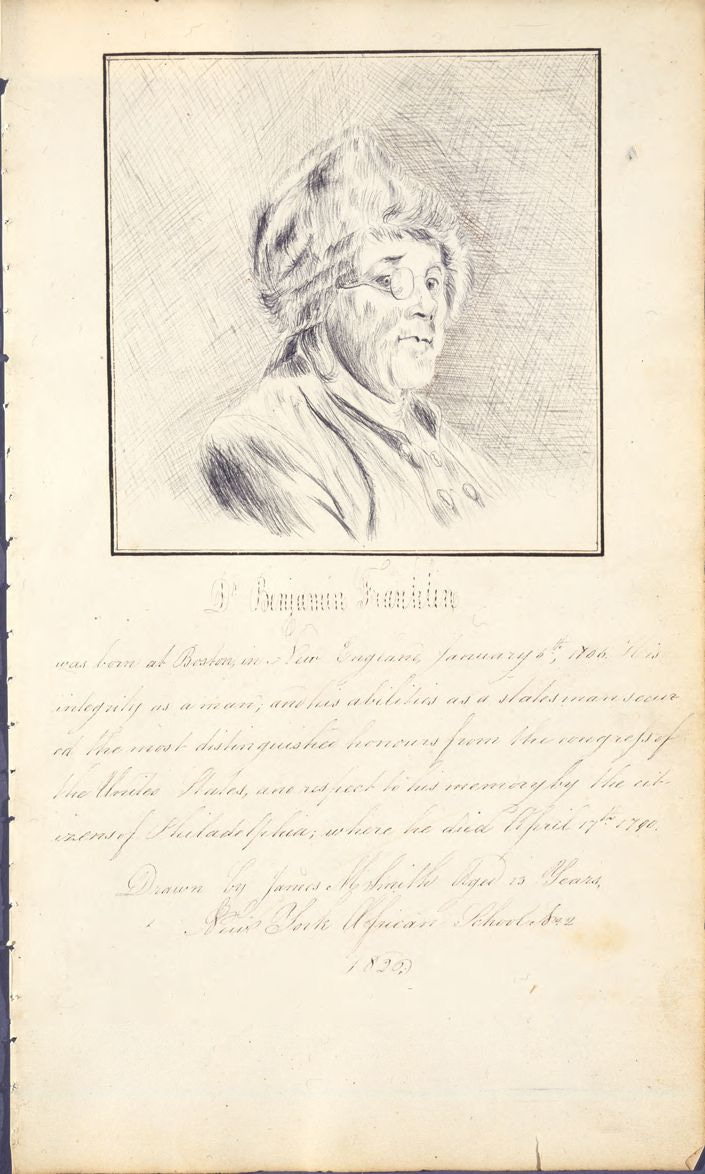 Dr Benjamin Franklin
was born at Boston, in New England, January 6th, 1706. His
integrity as a man; and his abilities as a statesman secur
ed the most distinguished honours from the congress of
the United States, and respect to his memory by the cit-
izens of Philadelphia; where he died April 17th 1790.
Drawn by James M. Smith Aged 13 Years,
New York African School No 2